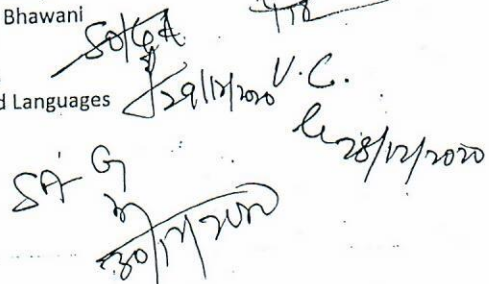 Bhawani
SO/GA
d Languages 29/12/2020 V.C.
28/12/2020
SA G
30/12/2020